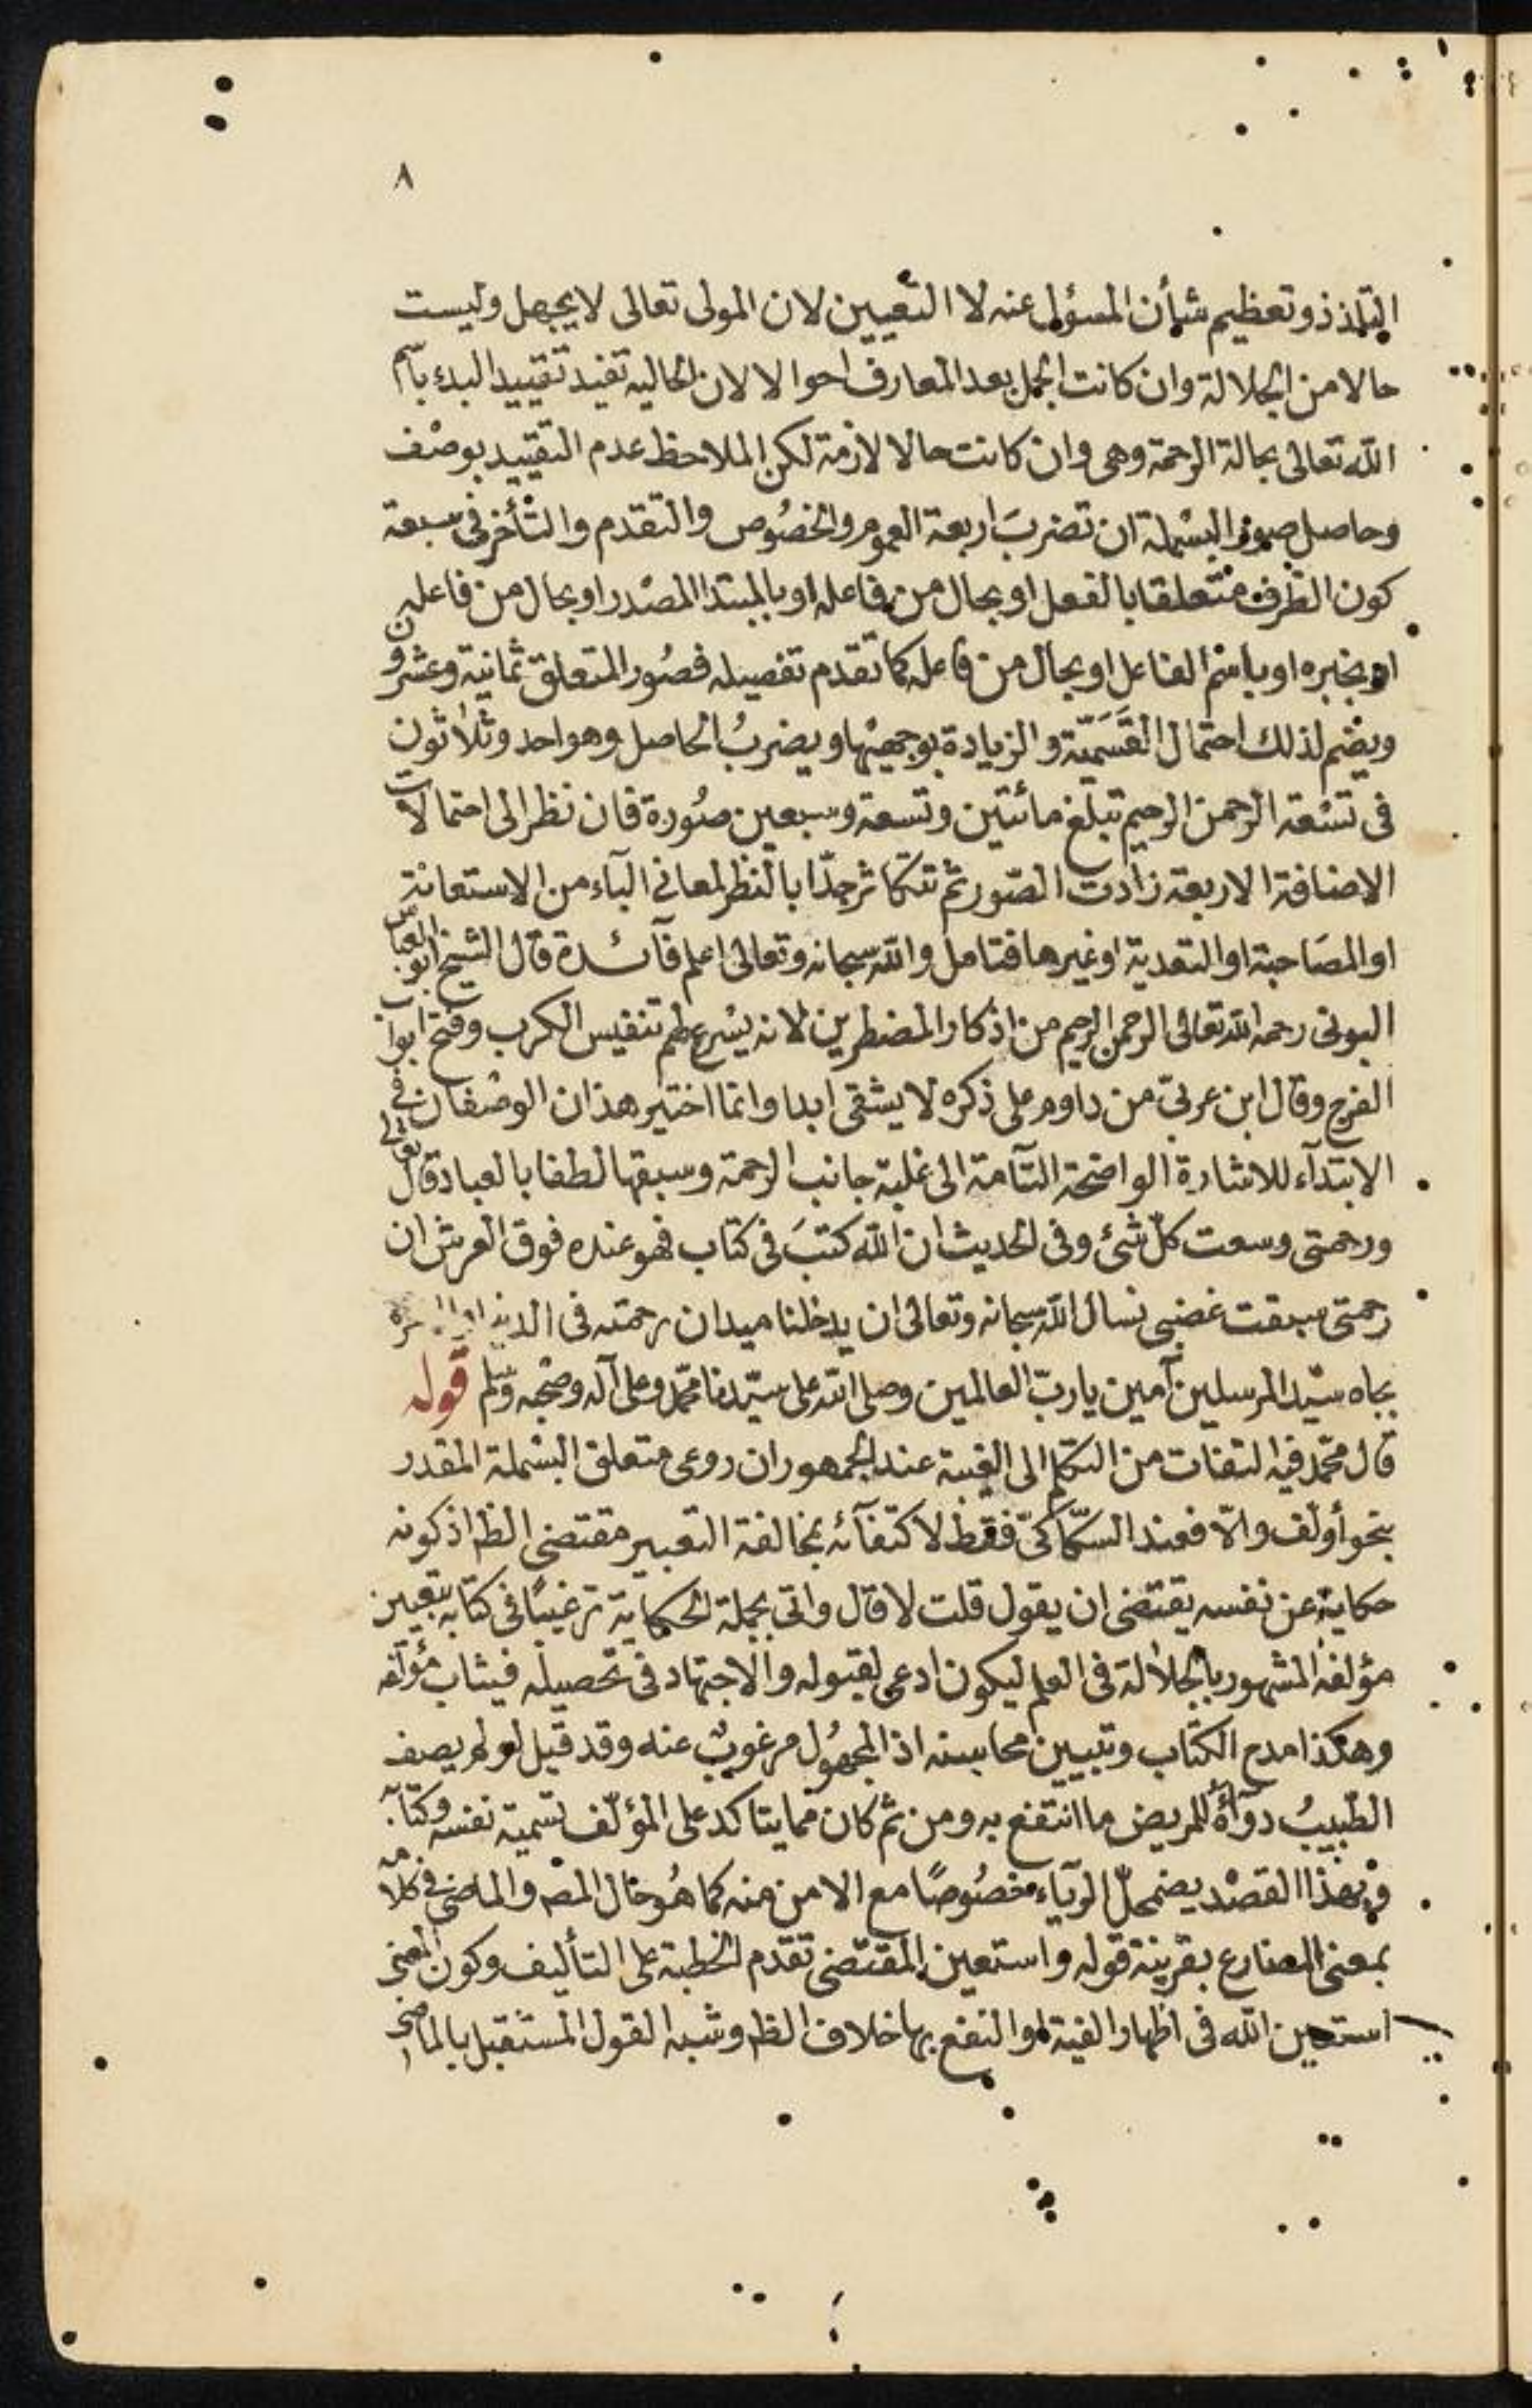 ٨
التلذذ وتعظيم شأن المسؤل عنه لا التعيين لان المولى تعالى لا يجهل وليست
حالا من الجلالة وان كانت الجمل بعد المعارف احوالا لان الحاليه تفيد تقييد البدء باسم
الله تعالى بحالة الرحمة وهى وان كانت حالا لازمة لكن الملاحظ عدم التقييد بوصف
وحاصل صور البسملة ان تضربَ اربعة العموم والخصُوص والتقدم والتأخر فى سبعة
كون الظرف متعلقا بالفعل او بحال من فاعله او بالمبتدا المصْدر او بحال من فاعله
او بخبره او باسم الفاعل او بحال من فاعله كما تقدم تفصيله فصُور المتعلق ثمانية وعشرون
ويضم لذلك احتمال القَسَميّة والزيادة بوجهيْها ويضربُ الحاصل وهو احد وثلاثون
فى تسْعة الرحمن الرحيم تبلغ مائتين وتسعة وسبعين صُورة فان نظر الى احتمالات
الاضافة الاربعة زادت الصّور ثم تتكاثر جدّا بالنظر لمعانى البآء من الاستعانة
او المصَاحبة او التعدية او غيرها فتامل والله سبحانه وتعالى اعلم فآئدة قال الشيخ ابو العباس
البونى رحمه الله تعالى الرحمن الرحيم من اذكار المضطرين لانه يسْرع لهم تنفيس الكرب وفتح ابواب
الفرج وقال ابن عربىّ من داوم على ذكره لا يشقى ابدا وانما اختير هذان الوصْفان فى
الابتدآء للاشارة الواضحة التآمة الى غلبة جانب الرحمة وسبقها لطفا بالعباد قال تعالى
ورحمتى وسعت كلّ شئ وفى الحديث ان الله كتبَ فى كتاب فهو عنده فوق العرش ان
رحمتى سبقت غضبى نسال الله سبحانه وتعالى ان يدخلنا ميدان رحمته فى الدنيا
بجاه سيّد المرسلين آمين يا ربّ العالمين وصلى الله على سيّدنا محمّد وعلى آله وصحْبه وسلم قوله
قال محمّد فيه التفات من التكلم الى الغيبة عند الجمهور ان روعى متعلق البسْملة المقدر
بنحو أولّف والاّ فعند السكّاكىّ فقط لاكتفآئه بمخالفة التعبير مقتضى الظ اذ كونه
حكاية عن نفسه يقتضى ان يقول قلت لا قال واتى بجملة الحكاية ترغيبًا فى كتابه بتعيين
مؤلفه المشهور بالجلالة فى العلم ليكون ادعى لقبوله والاجتهاد فى تحصيله فيثاب مؤلفه
وهكذا مدح الكتاب وتبيين محاسنه اذ المجهُول مرغوبٌ عنه وقد قيل لو لم يصف
الطّبيبُ دوآءً للمريض ما انتفع به ومن ثم كان مما يتاكد على المؤلّف تسْمية نفسه وكتابه
وبهذا القصْد يضمحلّ الريآء مخصُوصًا مع الامن منه كما هُو حال المص والماضى فى كلامه
بمعنى المضارع بقرينة قوله واستعين المقتضى تقدم الخطبة على التأليف وكون المعنى
استعين الله فى اظهار الفية او النفع بها خلاف الظ وشبه القول المستقبل بالماضى